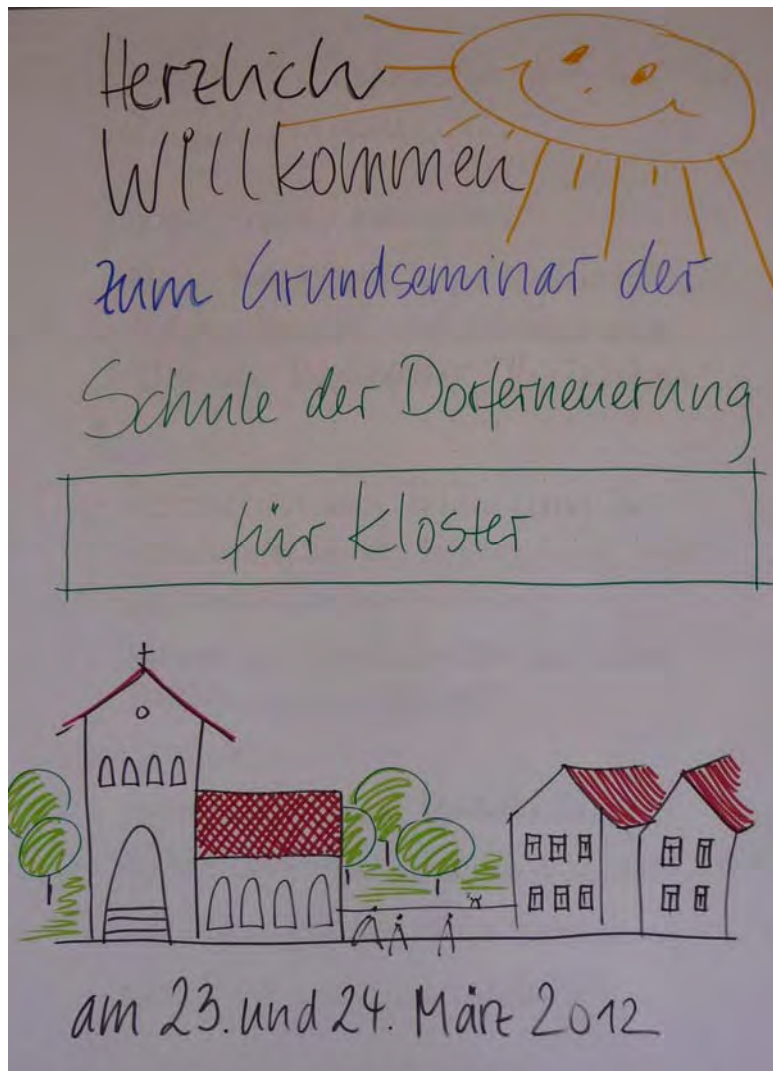 Herzlich
Willkommen
zum Grundseminar der
Schule der Dorferneuerung
für Kloster
am 23. und 24. März 2012